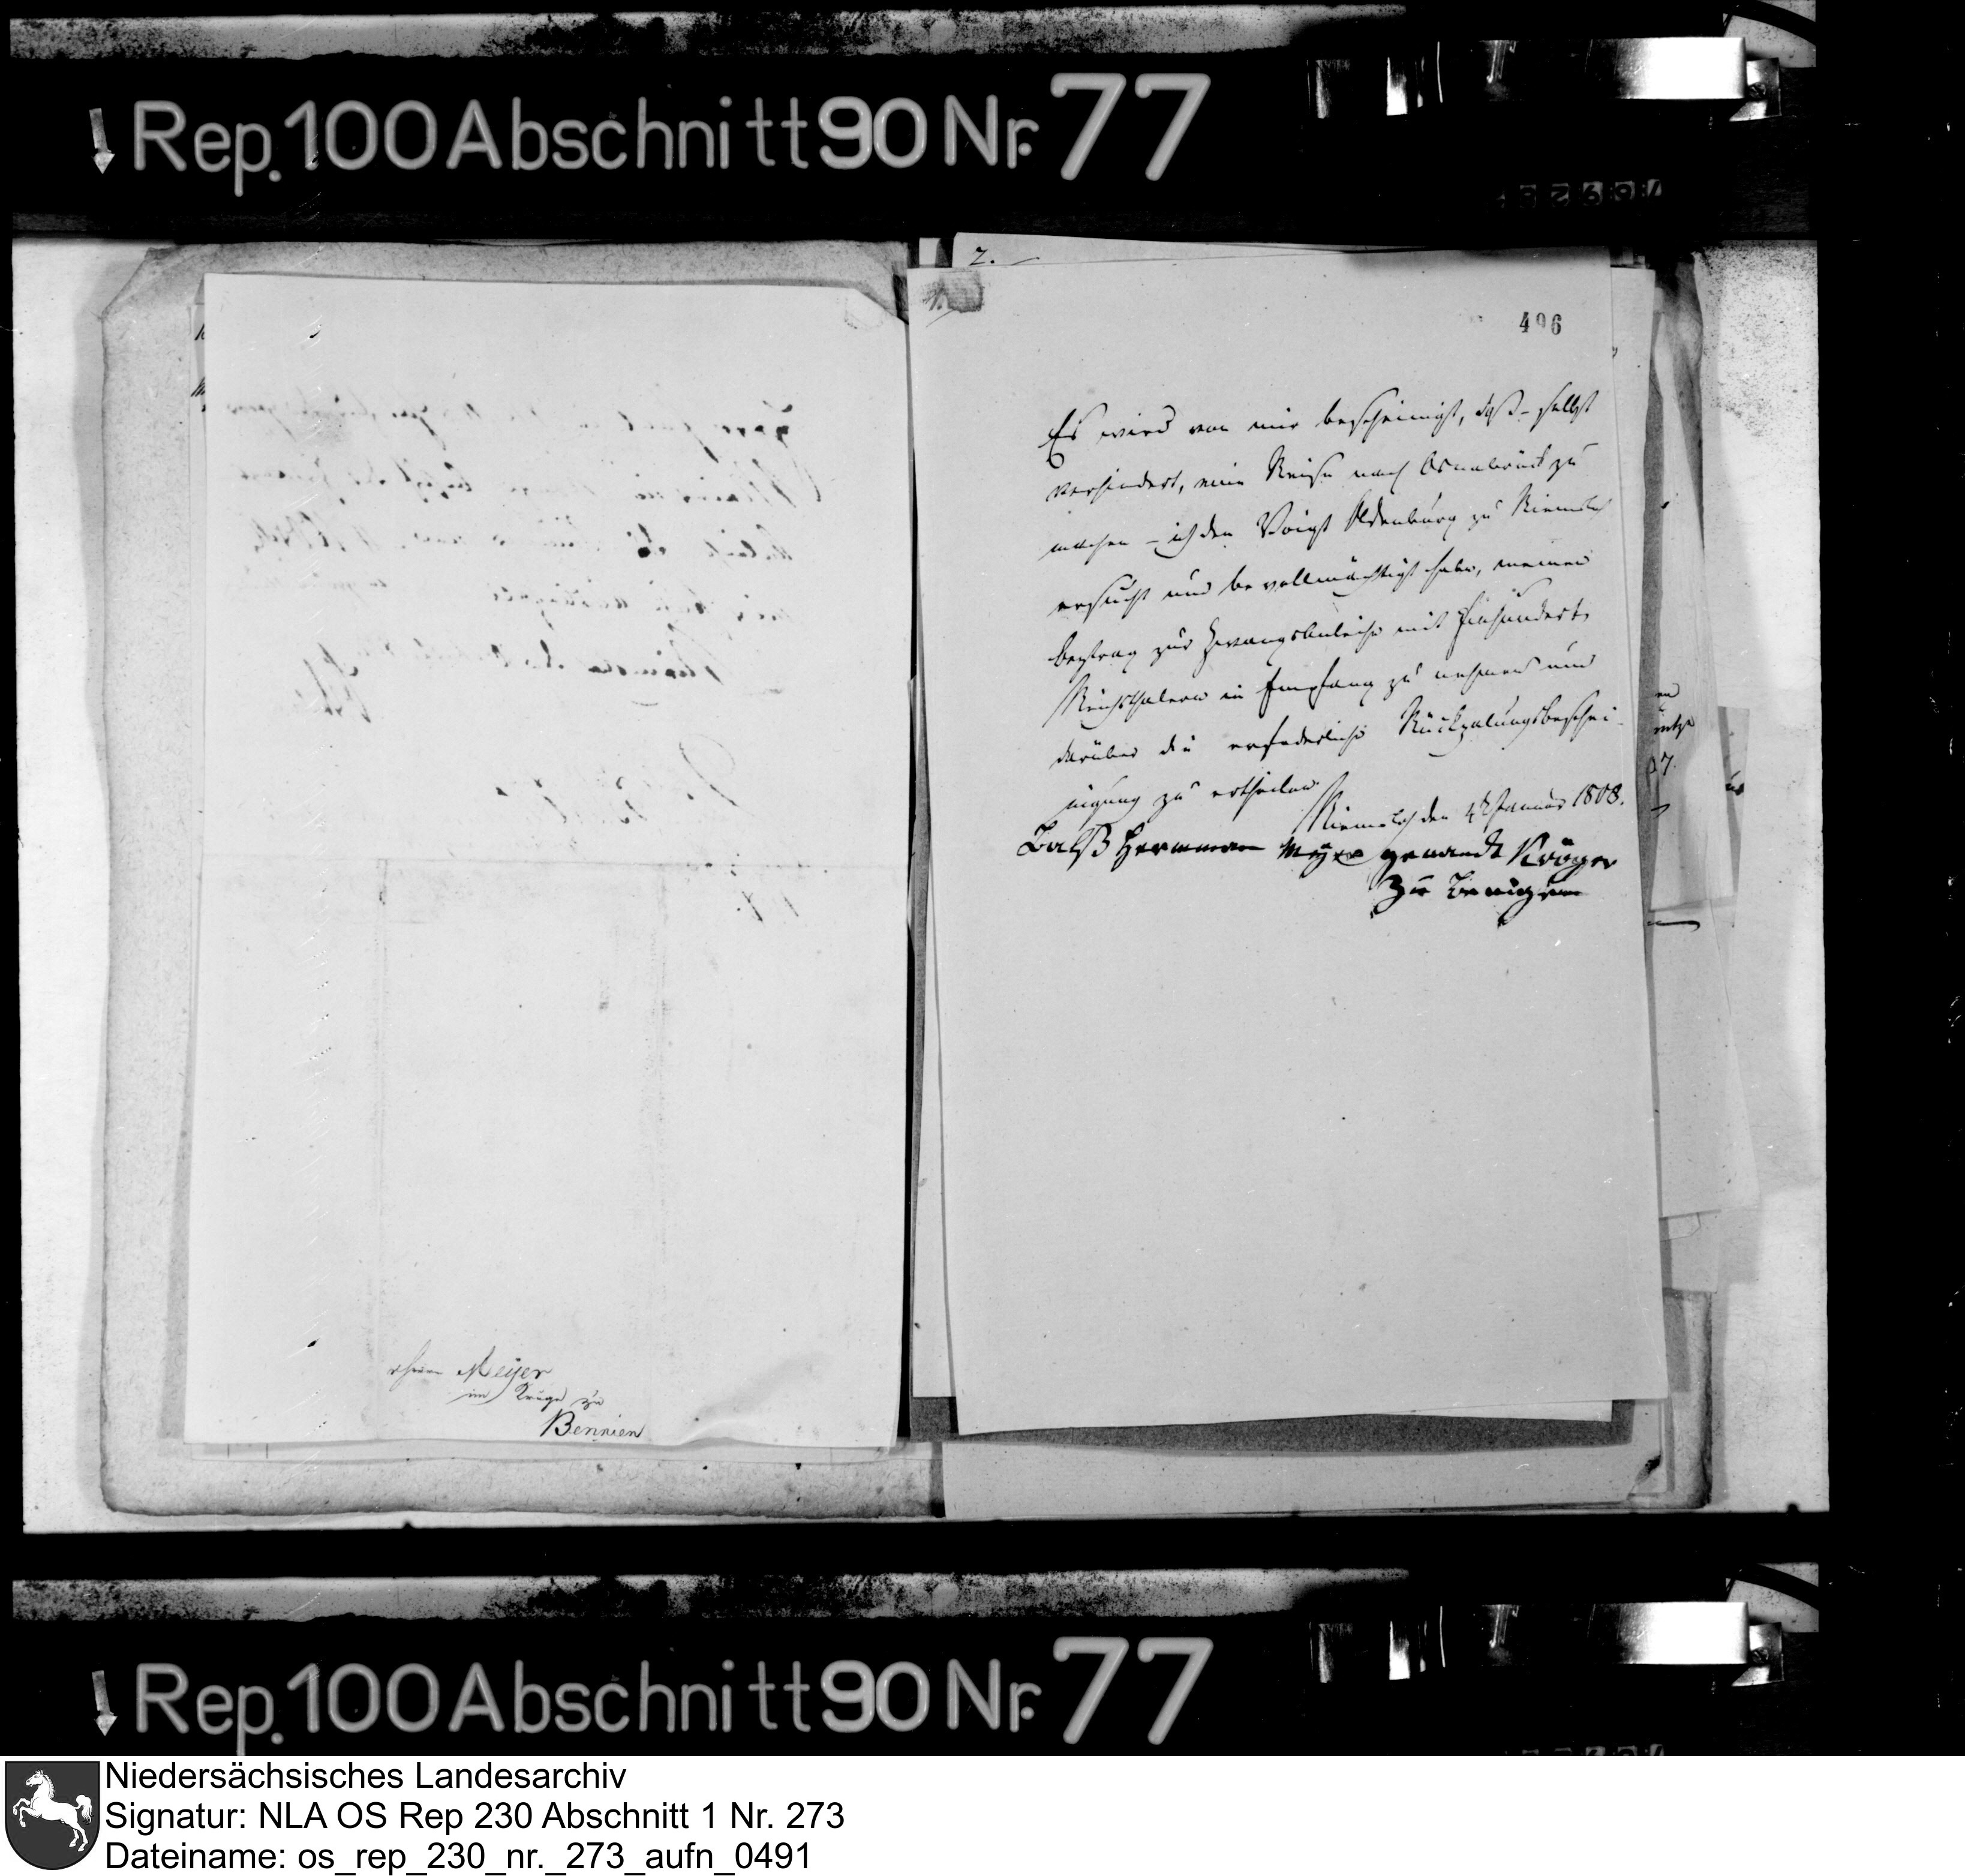 Rep. 100 Abschnitt 90 Nr. 77
2.
1.
496
Es wird von mir bescheinigt, daß – selbst
verhindert, eine Reise nach Osnabrück zu
machen – ich den Voigt Oldenburg zu Riemsloh
ersucht und bevollmächtigt habe, meinen
Beytrag zur Zwangsanleihe mit Einhundert
Reichsthalern in Empfang zu nehmen und
darüber die erfoderliche Rückzalungsbeschei-
nigung zu ertheilen.
Riemsloh den 4t Januar 1808.
Balß Herman Meyer genandt Kröger
zu Bennien
Herrn Meyer
im Kruge zu
Bennien
Rep. 100 Abschnitt 90 Nr. 77
Niedersächsisches Landesarchiv
Signatur: NLA OS Rep 230 Abschnitt 1 Nr. 273
Dateiname: os_rep_230_nr._273_aufn_0491